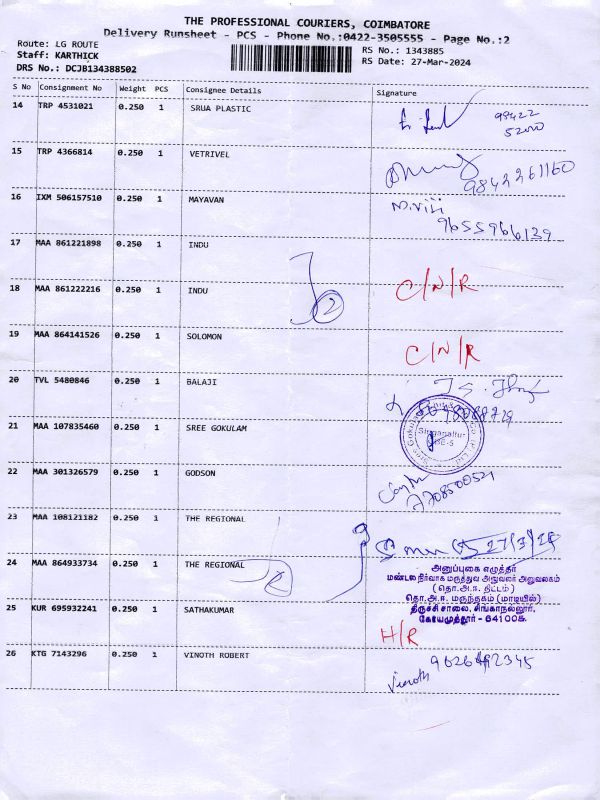 THE PROFESSIONAL COURIERS, COIMBATORE
Delivery Runsheet - PCS - Phone No.:0422-3505555 - Page No.:2
Route: LG ROUTE
Staff: KARTHICK
DRS No.: DCJB134388502
RS No.: 1343885
RS Date: 27-Mar-2024
S No Consignment No Weight PCS Consignee Details Signature
14 TRP 4531021 0.250 1 SRUA PLASTIC
98422
15 TRP 4366814 0.250 1 VETRIVEL
9842261160
16 IXM 506157510 0.250 1 MAYAVAN
9655966139
17 MAA 861221898 0.250 1 INDU
2
18 MAA 861222216 0.250 1 INDU C/N/R
19 MAA 864141526 0.250 1 SOLOMON C/N/R
20 TVL 5480846 0.250 1 BALAJI
21 MAA 107835460 0.250 1 SREE GOKULAM
Singanallur
CBE-5
22 MAA 301326579 0.250 1 GODSON
7708500521
23 MAA 108121182 0.250 1 THE REGIONAL
27/3/24
24 MAA 864933734 0.250 1 THE REGIONAL
அனுப்புகை எழுத்தர்
மண்டல நிர்வாக மருத்துவ அலுவலர் அலுவலகம்
(தொ.அ.ஈ. திட்டம்)
தொ.அ.ஈ. மருந்தகம் (மாடியில்)
திருச்சி சாலை, சிங்காநல்லூர்,
கோயமுத்தூர் - 641005.
25 KUR 695932241 0.250 1 SATHAKUMAR H/R
26 KTG 7143296 0.250 1 VINOTH ROBERT
Vinoth